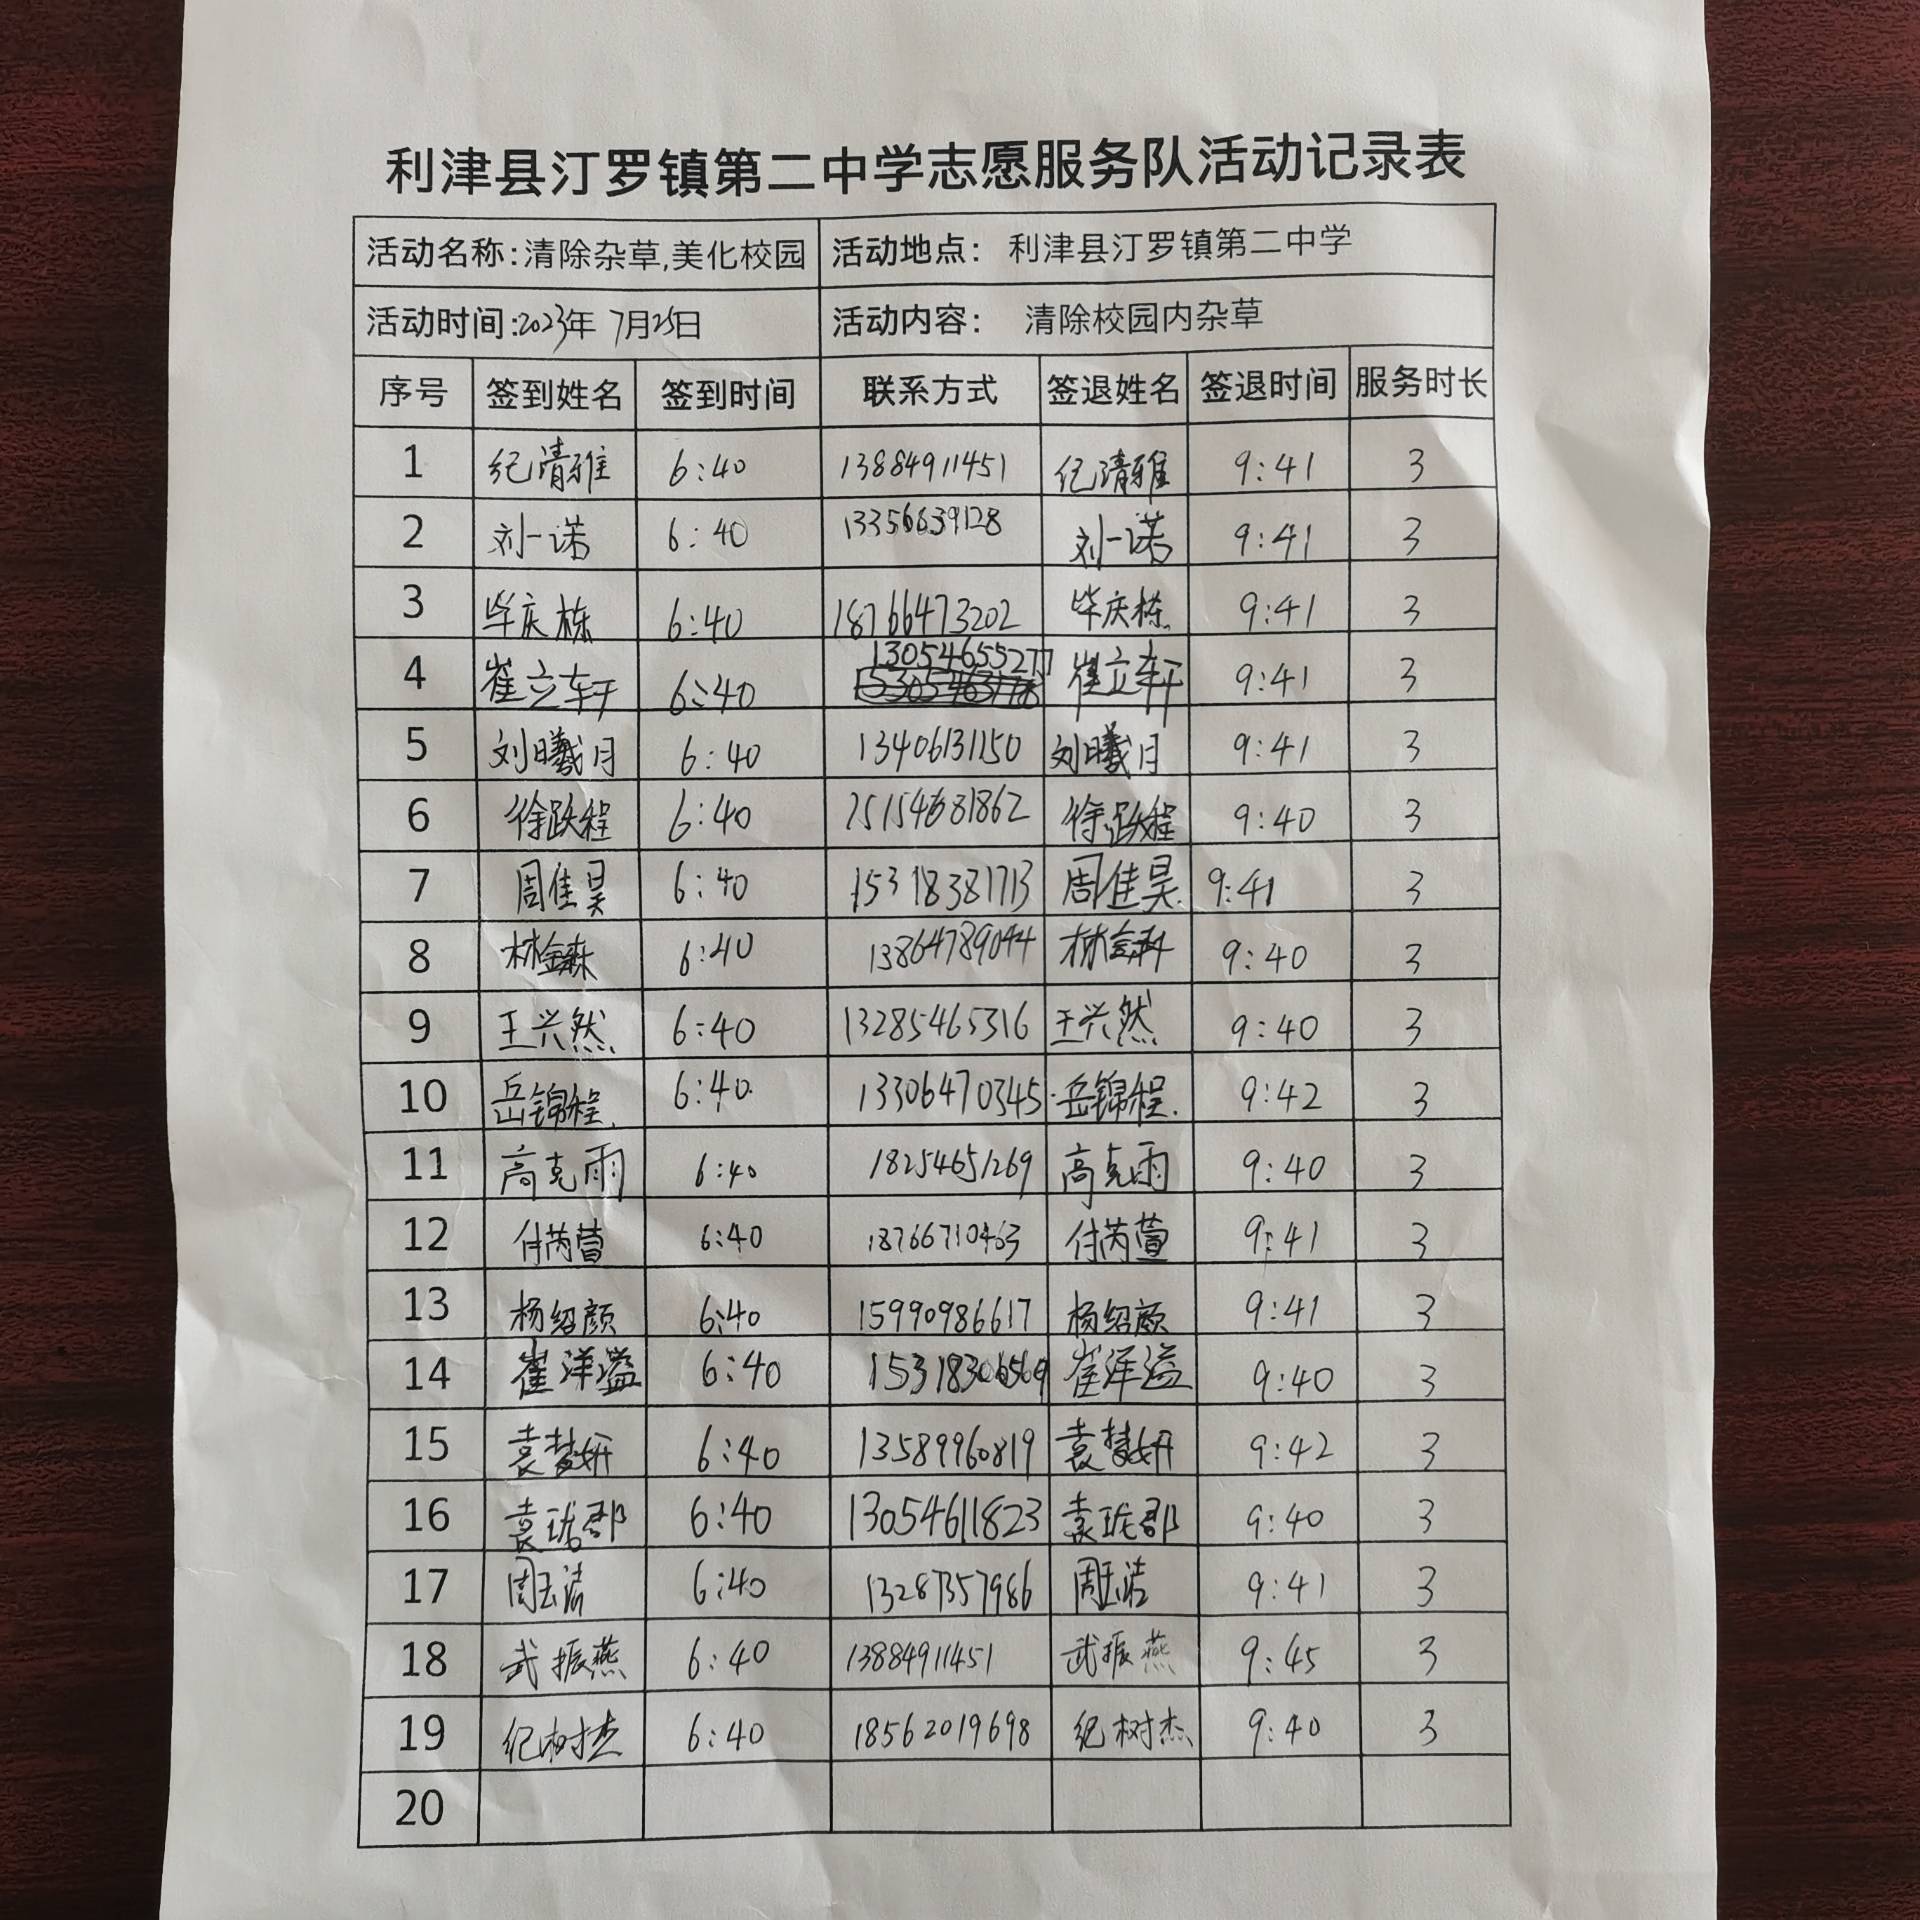 利津县汀罗镇第二中学志愿服务队活动记录表
活动名称:清除杂草,美化校园 活动地点： 利津县汀罗镇第二中学
活动时间:2023年 7月25日 活动内容： 清除校园内杂草
序号 签到姓名 签到时间 联系方式 签退姓名 签退时间 服务时长
1 纪清雅 6:40 13884911451 纪清雅 9:41 3
2 刘一诺 6:40 13356639128 刘一诺 9:41 3
3 毕庆栋 6:40 18766473202 毕庆栋 9:41 3
4 崔立轩 6:40 13054655277 崔立轩 9:41 3
5 刘曦月 6:40 13406131150 刘曦月 9:41 3
6 徐跃程 6:40 15154681862 徐跃程 9:40 3
7 周佳昊 6:40 15318381713 周佳昊 9:41 3
8 6:40 13864789044 9:40 3
9 王兴然 6:40 13285465316 王兴然 9:40 3
10 岳锦程 6:40 13306470345 岳锦程 9:42 3
11 高克雨 6:40 18254651269 高克雨 9:40 3
12 付芮萱 6:40 18766710463 付芮萱 9:41 3
13 杨绍颜 6:40 15990986617 杨绍颜 9:41 3
14 崔洋溢 6:40 15318306569 崔洋溢 9:40 3
15 袁梦妍 6:40 13589960819 袁梦妍 9:42 3
16 6:40 13054611823 9:40 3
17 周玉洁 6:40 13287357986 周玉洁 9:41 3
18 武振燕 6:40 13884911451 武振燕 9:45 3
19 纪树杰 6:40 18562019698 纪树杰 9:40 3
20